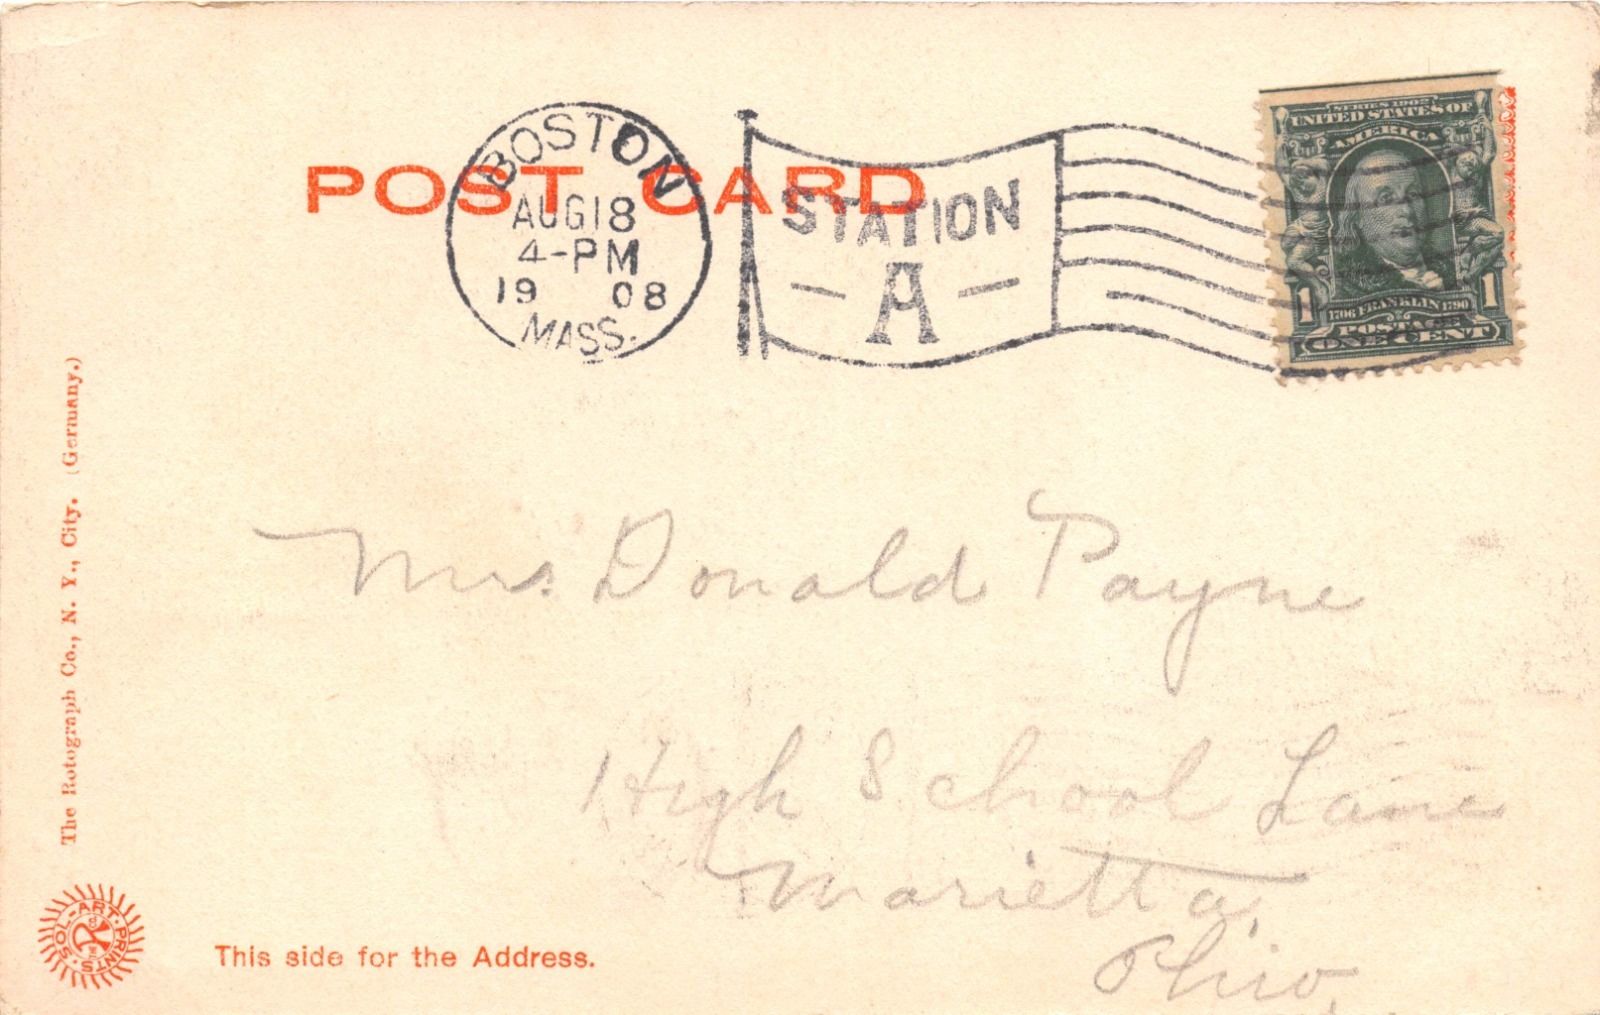 POST CARD
BOSTON
AUG 18
4-PM
19 08
MASS.
STATION
- A -
SERIES 1902
UNITED STATES OF
AMERICA
1 1
1706 FRANKLIN 1790
POSTAGE
ONE CENT
Mrs. Donald Payne
High School Lane
Marietta,
Ohio.
The Rotograph Co., N. Y., City. (Germany.)
SOL-ART-PRINTS
This side for the Address.